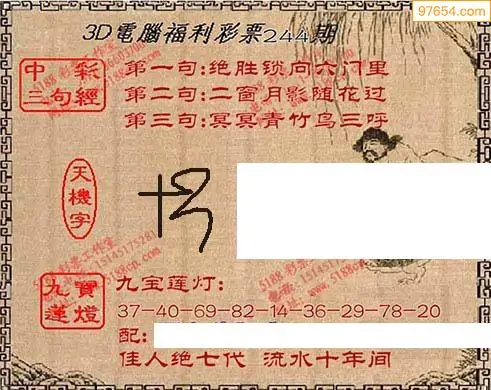 97654.com
3D電腦福利彩票244期
中彩三句經
第一句:绝胜锁向六门里
第二句:二窗月影随花过
第三句:冥冥青竹鸟三呼
天機字
九寶蓮燈
九宝莲灯:
37-40-69-82-14-36-29-78-20
配:
佳人绝七代 流水十年间